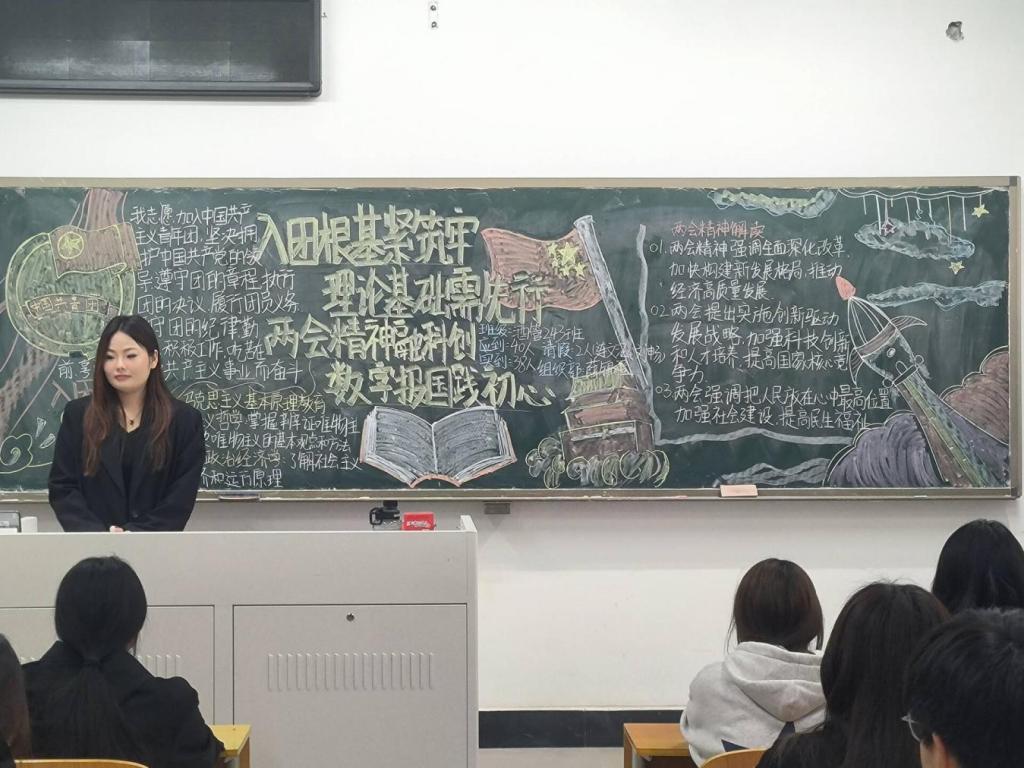 我志愿加入中国共产
主义青年团,坚决拥
护中国共产党的领
导遵守团的章程,执行
团的决议,履行团员义务
守团的纪律勤
积极工作,吃苦在
前享
共产主义事业而奋斗
入团根基紧筑牢
理论基础需先行
两会精神融科创
数字报国践初心
班级:酒管243班
应到:40人 请假:2人
实到:38人
思主义基本原理教育
义哲学,掌握辩证唯物主
史唯物主义的基本观点和方法
政治经济学,了解社会主义
济和运行原理
两会精神解读
01.两会精神强调全面深化改革,
加快构建新发展格局,推动
经济高质量发展
02.两会提出实施创新驱动
发展战略,加强科技创新
和人才培养,提高国家核心竞
争力
03.两会强调把人民放在心中最高位置
加强社会建设,提高民生福祉